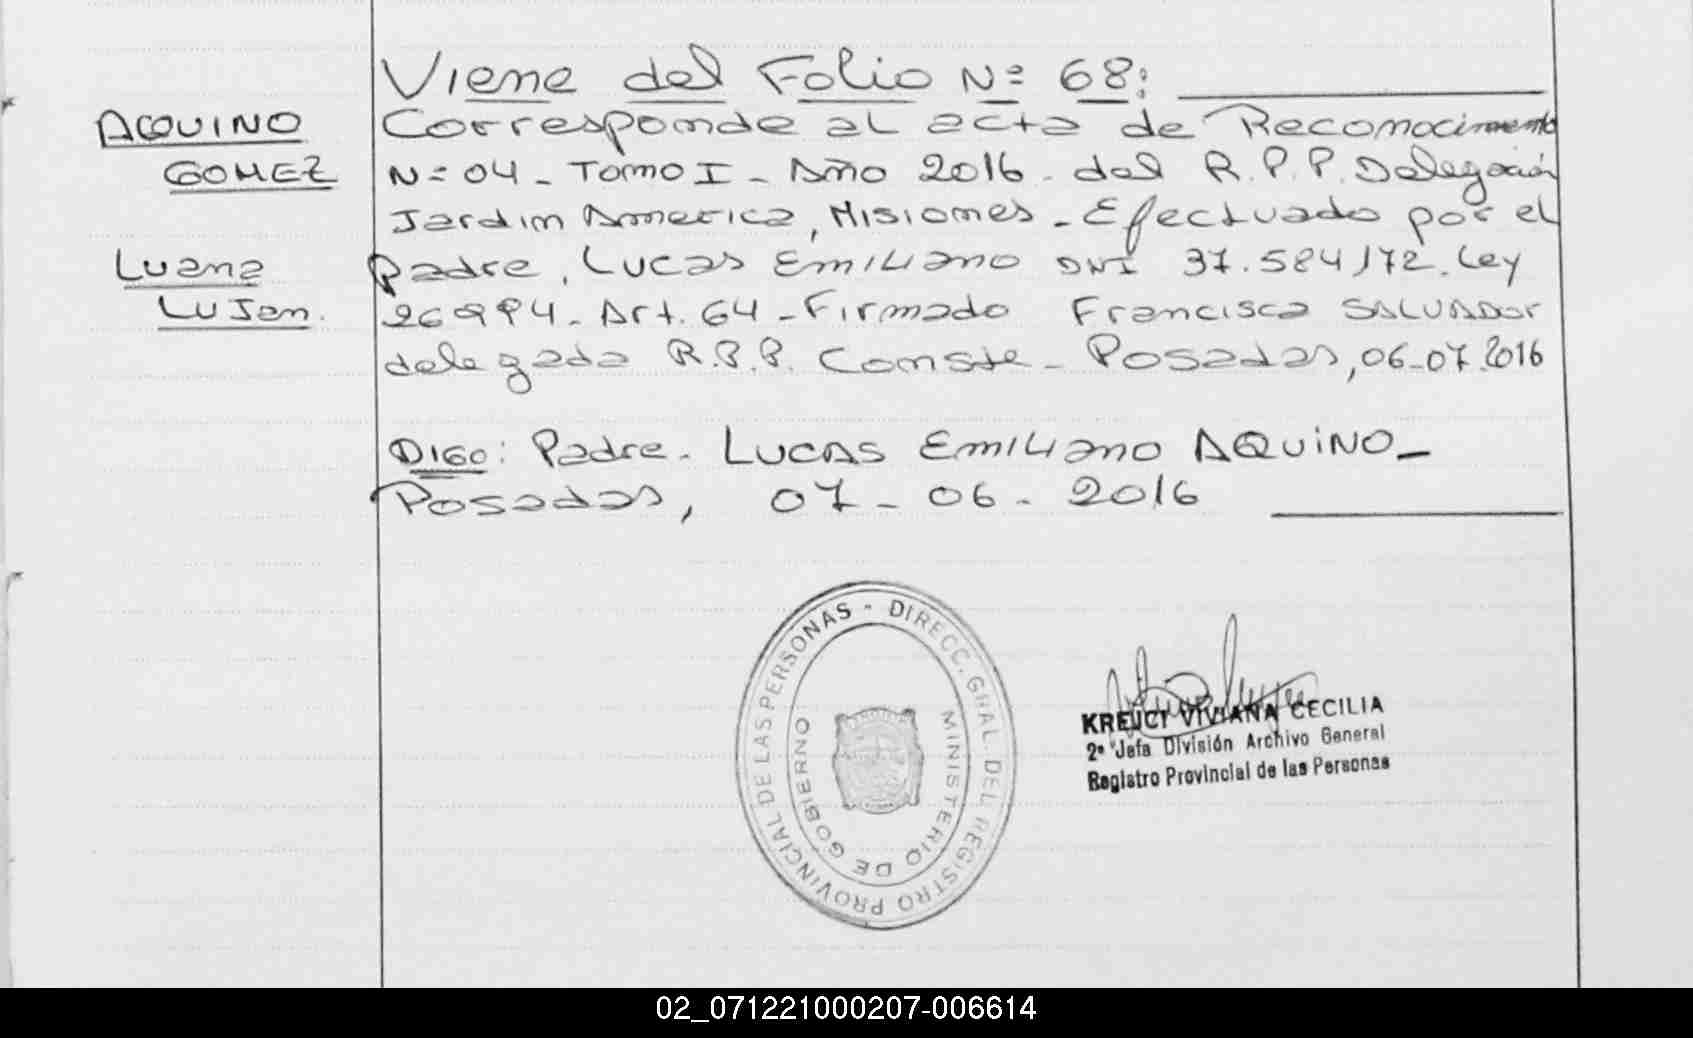 Viene del Folio Nº 68:
AQUINO
GOMEZ
Luana
LuJan.
Corresponde al acta de Reconocimiento
Nº 04 - Tomo I - Año 2016 - del R.P.P. Delegación
Jardin America, Misiones - Efectuado por el
Padre, Lucas Emiliano DNI 37.584172. Ley
26994 - Art. 64 - Firmado Francisca SALVADOR
delegada R.P.P. Conste - Posadas, 06-07.2016
DIGO: Padre - LUCAS Emiliano AQUINO -
Posadas, 07 - 06 - 2016
DIRECC. GRAL. DEL REGISTRO PROVINCIAL DE LAS PERSONAS -
MINISTERIO DE GOBIERNO
KREUCI VIVIANA CECILIA
2ª Jefa División Archivo General
Registro Provincial de las Personas
02_071221000207-006614